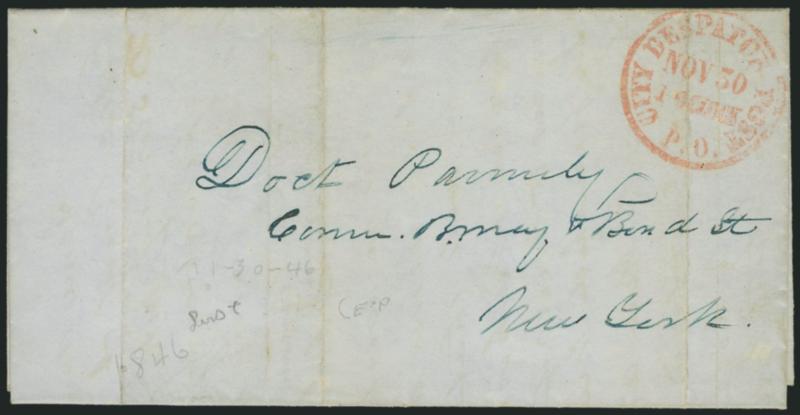 CITY DESPATCH POST
NOV 30
1 O'CLOCK
P.O.
Doct Parmely
Corner. B.way & Bond St
New York.
11-30-46
1846